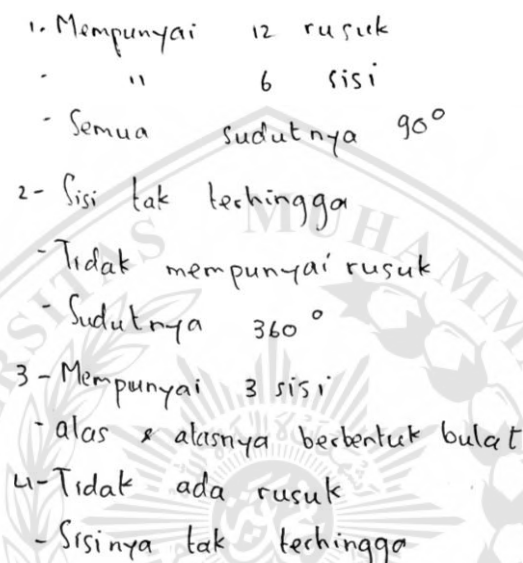 1. Mempunyai 12 rusuk
- " 6 sisi
- Semua sudutnya 90°
2- Sisi tak terhingga
- Tidak mempunyai rusuk
- Sudutnya 360°
3- Mempunyai 3 sisi
- alas & alasnya berbentuk bulat
4- Tidak ada rusuk
- Sisinya tak terhingga